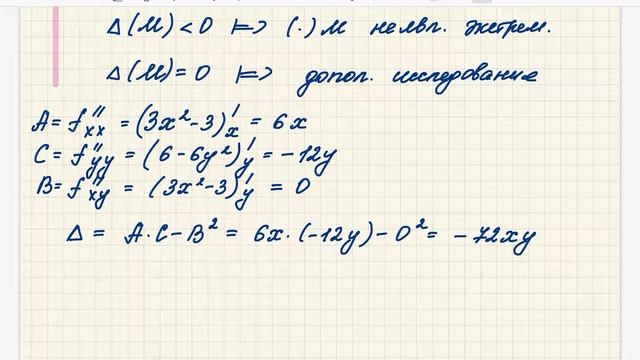 Δ(M) < 0 ⊨> (·) M не явл. экстрем.
Δ(M) = 0 ⊨> допол. исследование
A = f''xx = (3x² - 3)'x = 6x
C = f''yy = (6 - 6y²)'y = -12y
B = f''xy = (3x² - 3)'y = 0
Δ = A·C - B² = 6x·(-12y) - 0² = -72xy